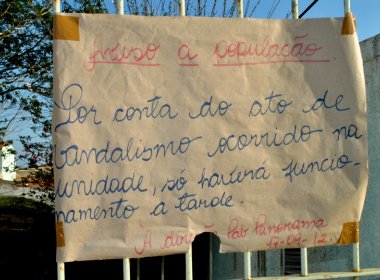 Aviso a população
Por conta do ato de
vandalismo ocorrido na
unidade, só haverá funcio-
namento a tarde.
À direção Pab Panorama
17-09-12